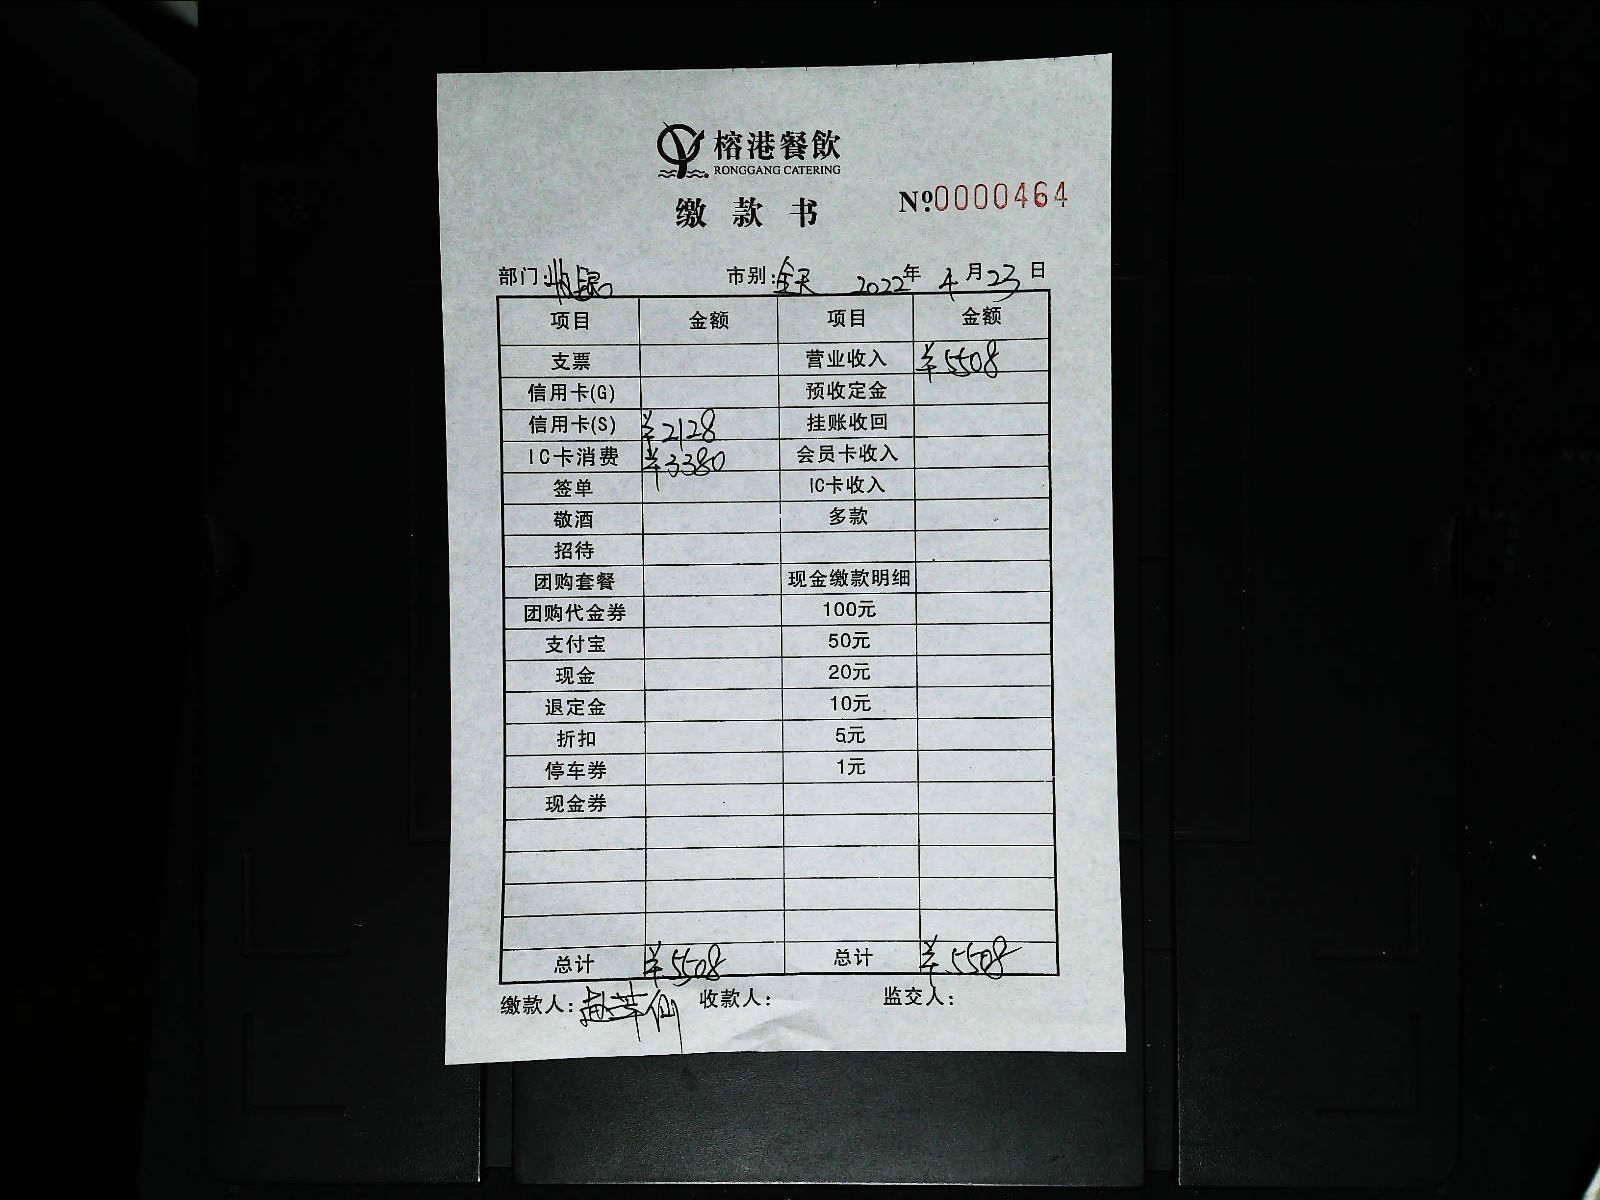 榕港餐飲
RONGGANG CATERING
缴款书
№0000464
部门:收银 市别:全天 2022年4月23日
项目 金额 项目 金额
支票 营业收入 ¥5508
信用卡(G) 预收定金
信用卡(S) ¥2128 挂账收回
IC卡消费 ¥3380 会员卡收入
签单 IC卡收入
敬酒 多款
招待
团购套餐 现金缴款明细
团购代金券 100元
支付宝 50元
现金 20元
退定金 10元
折扣 5元
停车券 1元
现金券
总计 ¥5508 总计 ¥5508
缴款人: 收款人: 监交人: